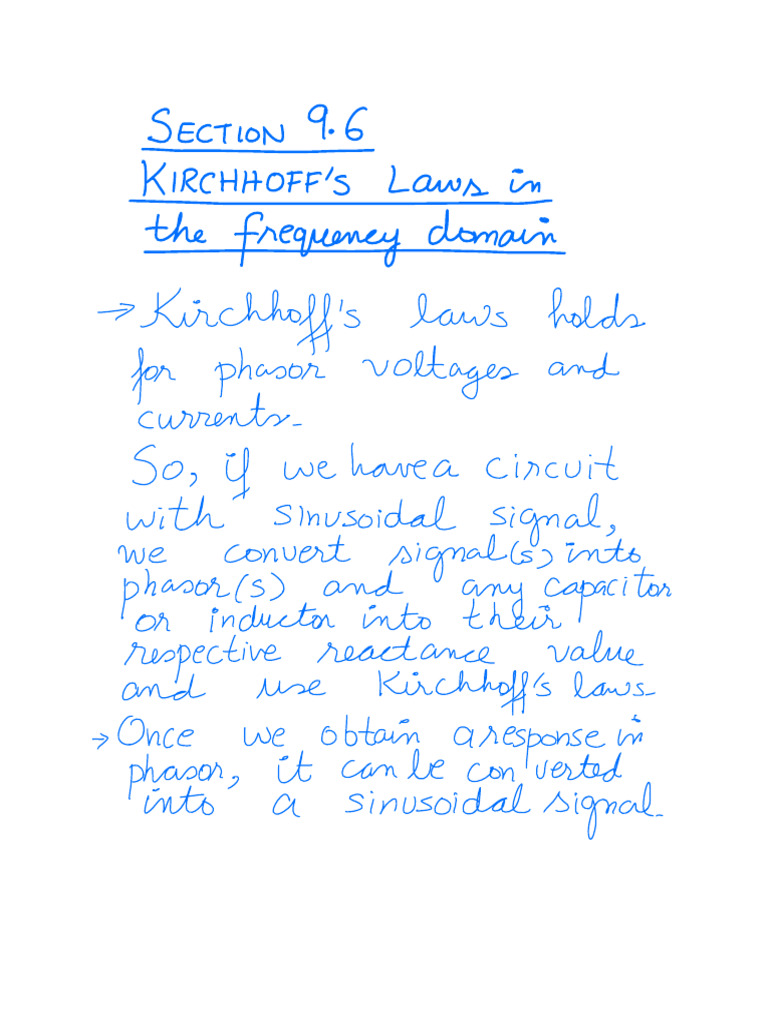 SECTION 9.6
KIRCHHOFF'S Laws in
the frequency domain
→ Kirchhoff's laws holds
for phasor voltages and
currents.
So, if we have a circuit
with sinusoidal signal,
we convert signal(s) into
phasor(s) and any capacitor
or inductor into their
respective reactance value
and use Kirchhoff's laws.
→ Once we obtain a response in
phasor, it can be converted
into a sinusoidal signal.